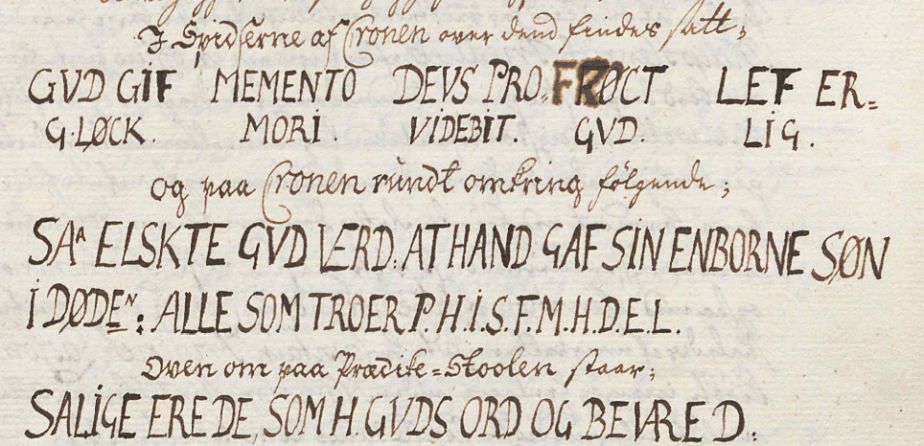 I Spidserne af Cronen over dend findes satt;
GVD GIF MEMENTO DEVS PRO= FRØCT LEF ER=
G. LØCK. MORI VIDEBIT. GVD. LIG.
og paa Cronen rundt omkring følgende;
SAA ELSKTE GVD VERD. AT HAND GAF SIN ENBORNE SØN
I DØDEN: ALLE SOM TROER P. H. I. S. F. M. H. D. E. L.
Oven om paa Prædike=Stoolen staar;
SALIGE ERE DE, SOM H. GVDS ORD OG BEVÆRE D.